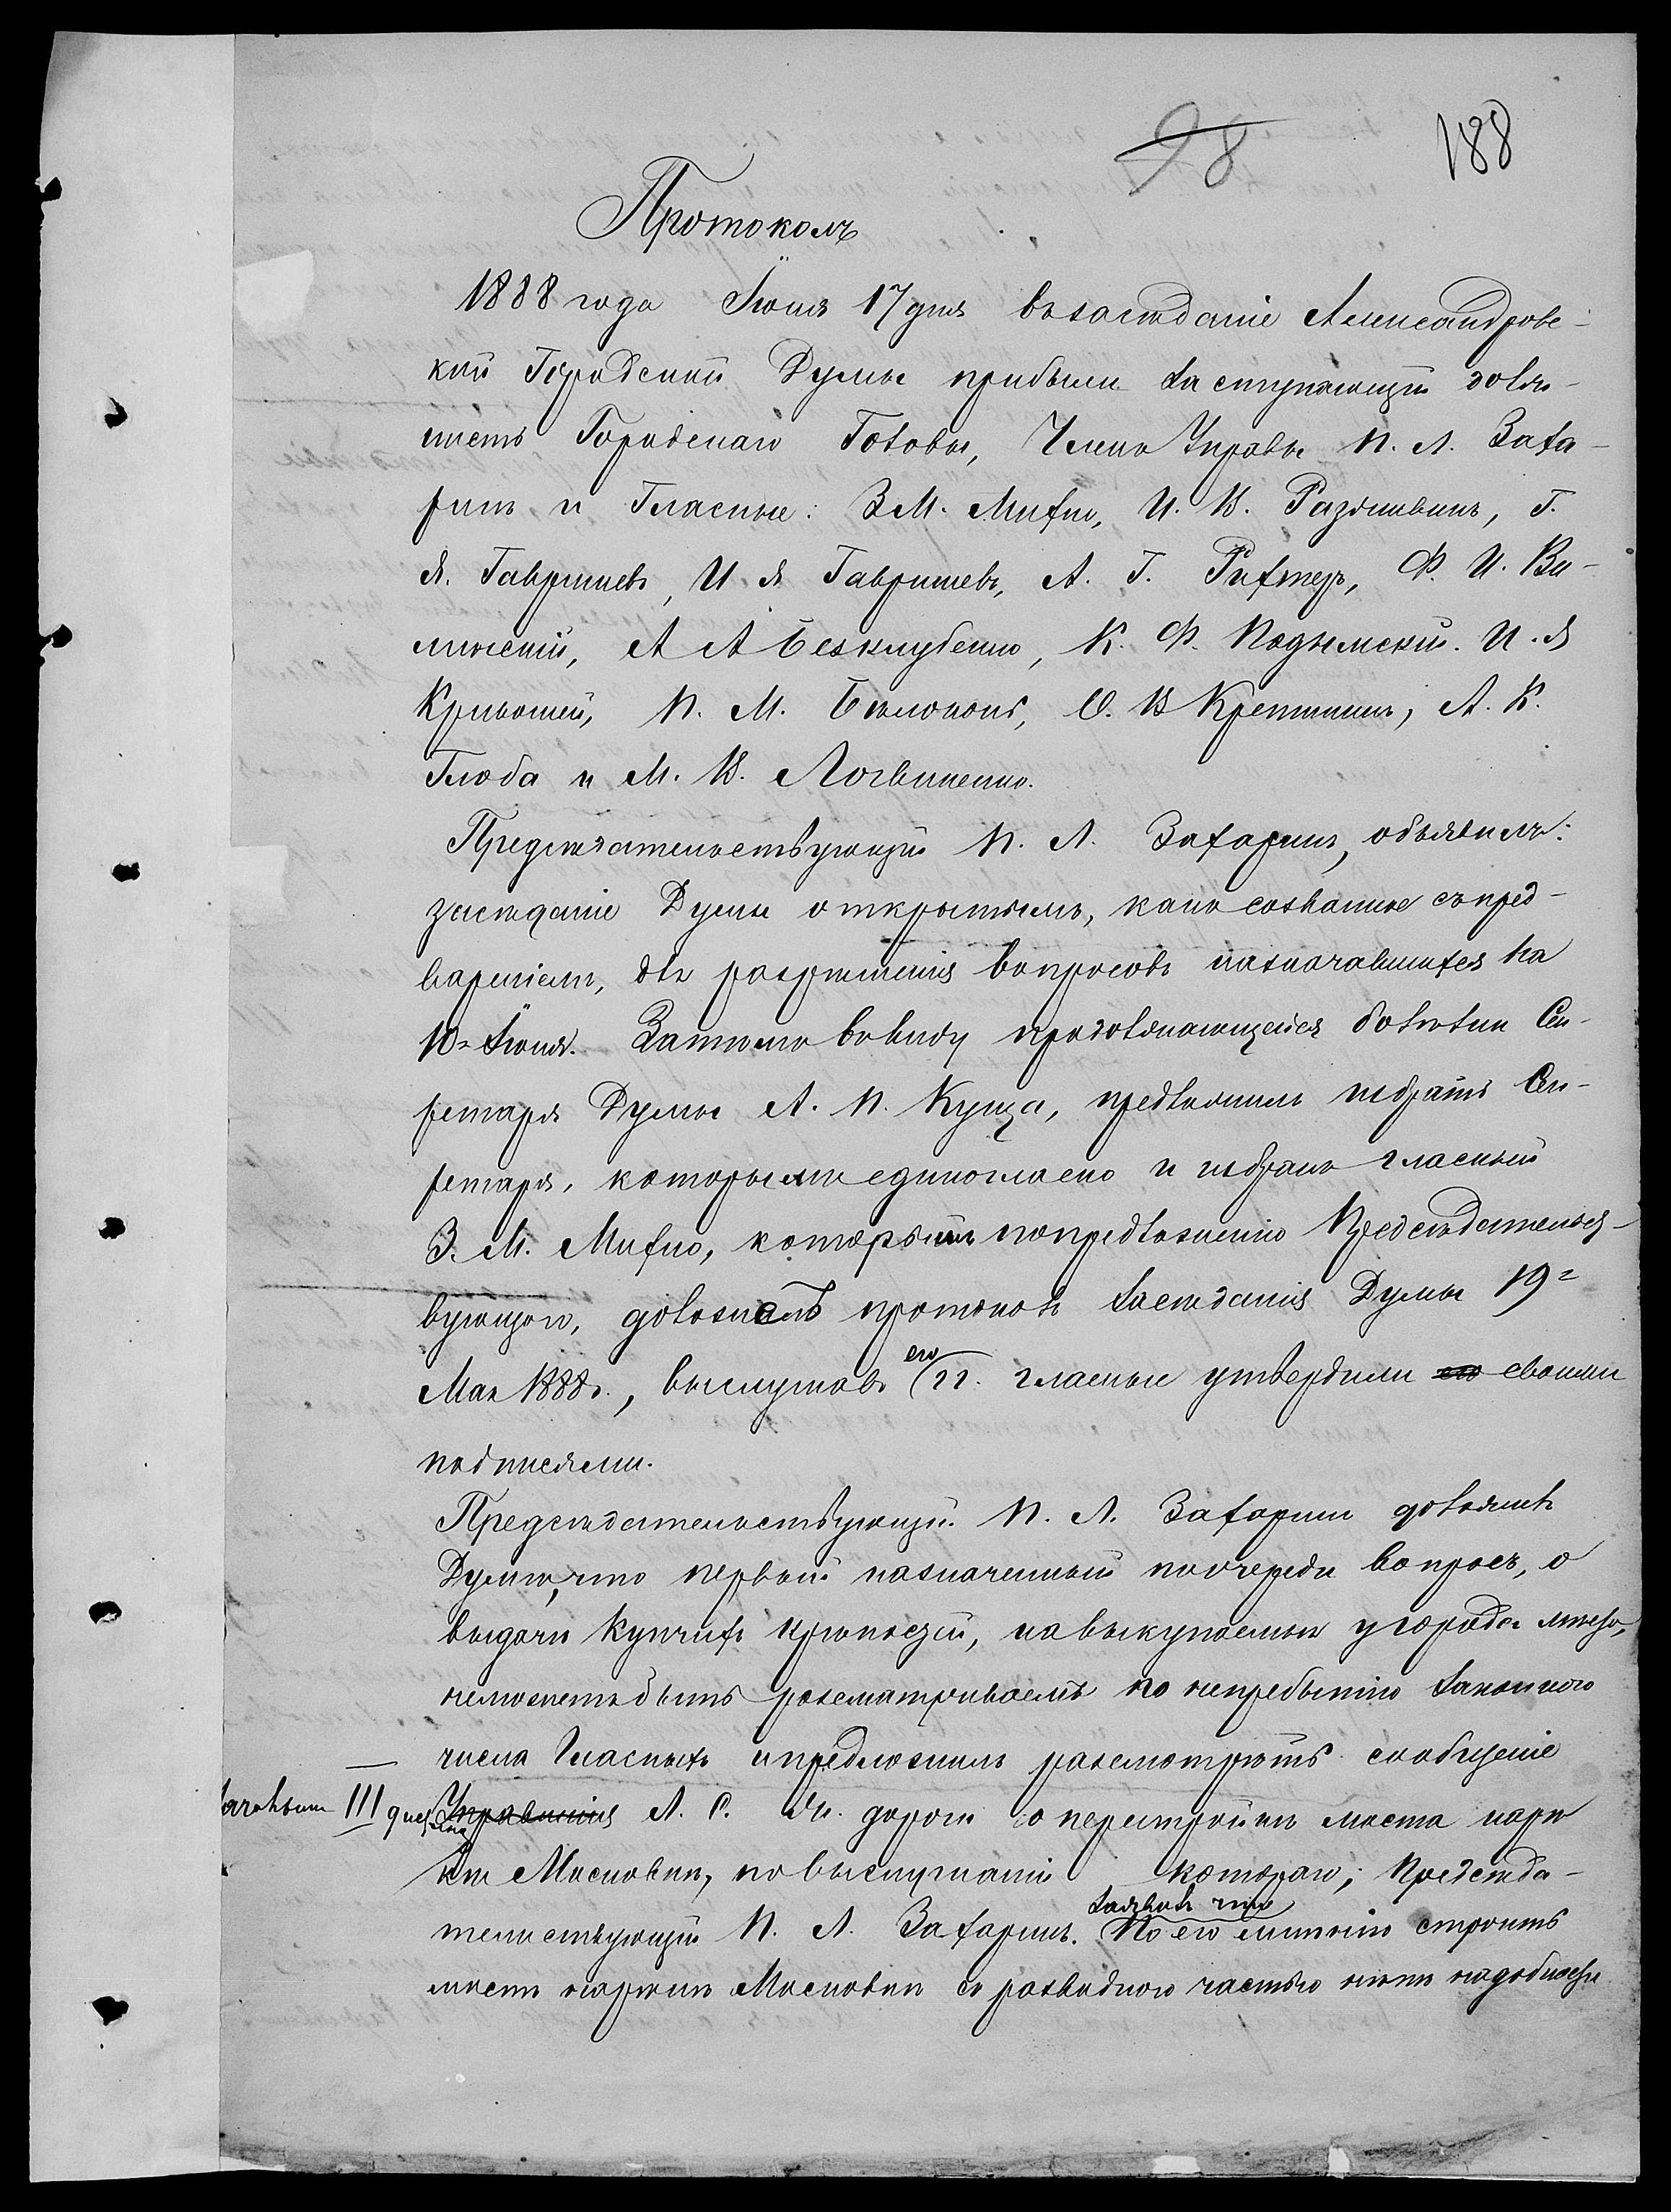 98 188
Протоколъ
1888 года Іюня 17 дня въ засѣданіе Александровс-
кой Городской Думы прибыли: заступающій долж-
ность Городскаго Головы, Членъ Управы П. Л. Заха-
ринъ и Гласные: З. М. Михно, И. В. Раздшивинъ, Г.
Я. Гавришевъ, И. Я. Гавришевъ, А. Г. Рихтеръ, Ф. И. Ви-
линскій, А. А. Безклубенко, К. Ф. Подземскій. И. Я
Кривошей, П. М. Бѣлоконь, О. В. Крепшинъ, А. К.
Глоба и М. В. Логвиненко.
Предсѣдательствующій П. Л. Захаринъ, объявилъ:
засѣданіе Думы открытымъ, какъ созванное съ пред-
вареніемъ, для разрѣшенія вопросовъ назначавшихся на
10-е Іюня. Затѣмъ въ виду продолжающейся болѣзни Сек-
ретаря Думы А. П. Купца, предложилъ избрать Сек-
ретаря, которымъ единогласно и избранъ гласный
З. М. Михно, которымъ по предложенію Предсѣдательст-
вующаго, доложенъ протоколъ засѣданія Думы 19го
Мая 1888 г., выслушавъ его гг. гласные утвердили его своими
подписями.
Предсѣдательствующій П. Л. Захаринъ доложилъ
Думѣ, что первый назначенный по очереди вопросъ, о
выдачи купчихъ крѣпостей, на выкупаемыя у города мѣста,
не можетъ быть разсматриваемъ по неприбытію законнаго
числа Гласныхъ и предложилъ разсмотрѣть сообщеніе
III Управленія Л. С. ж. дороги о перестройкѣ моста чрезъ
рѣку Московку, по выслушаніи котораго, Предсѣда-
тельствующій П. Л. Захаринъ. заявилъ что По его мнѣнію строить
мостъ чрезъ рѣку Московку съ разводною частью нѣтъ надобности